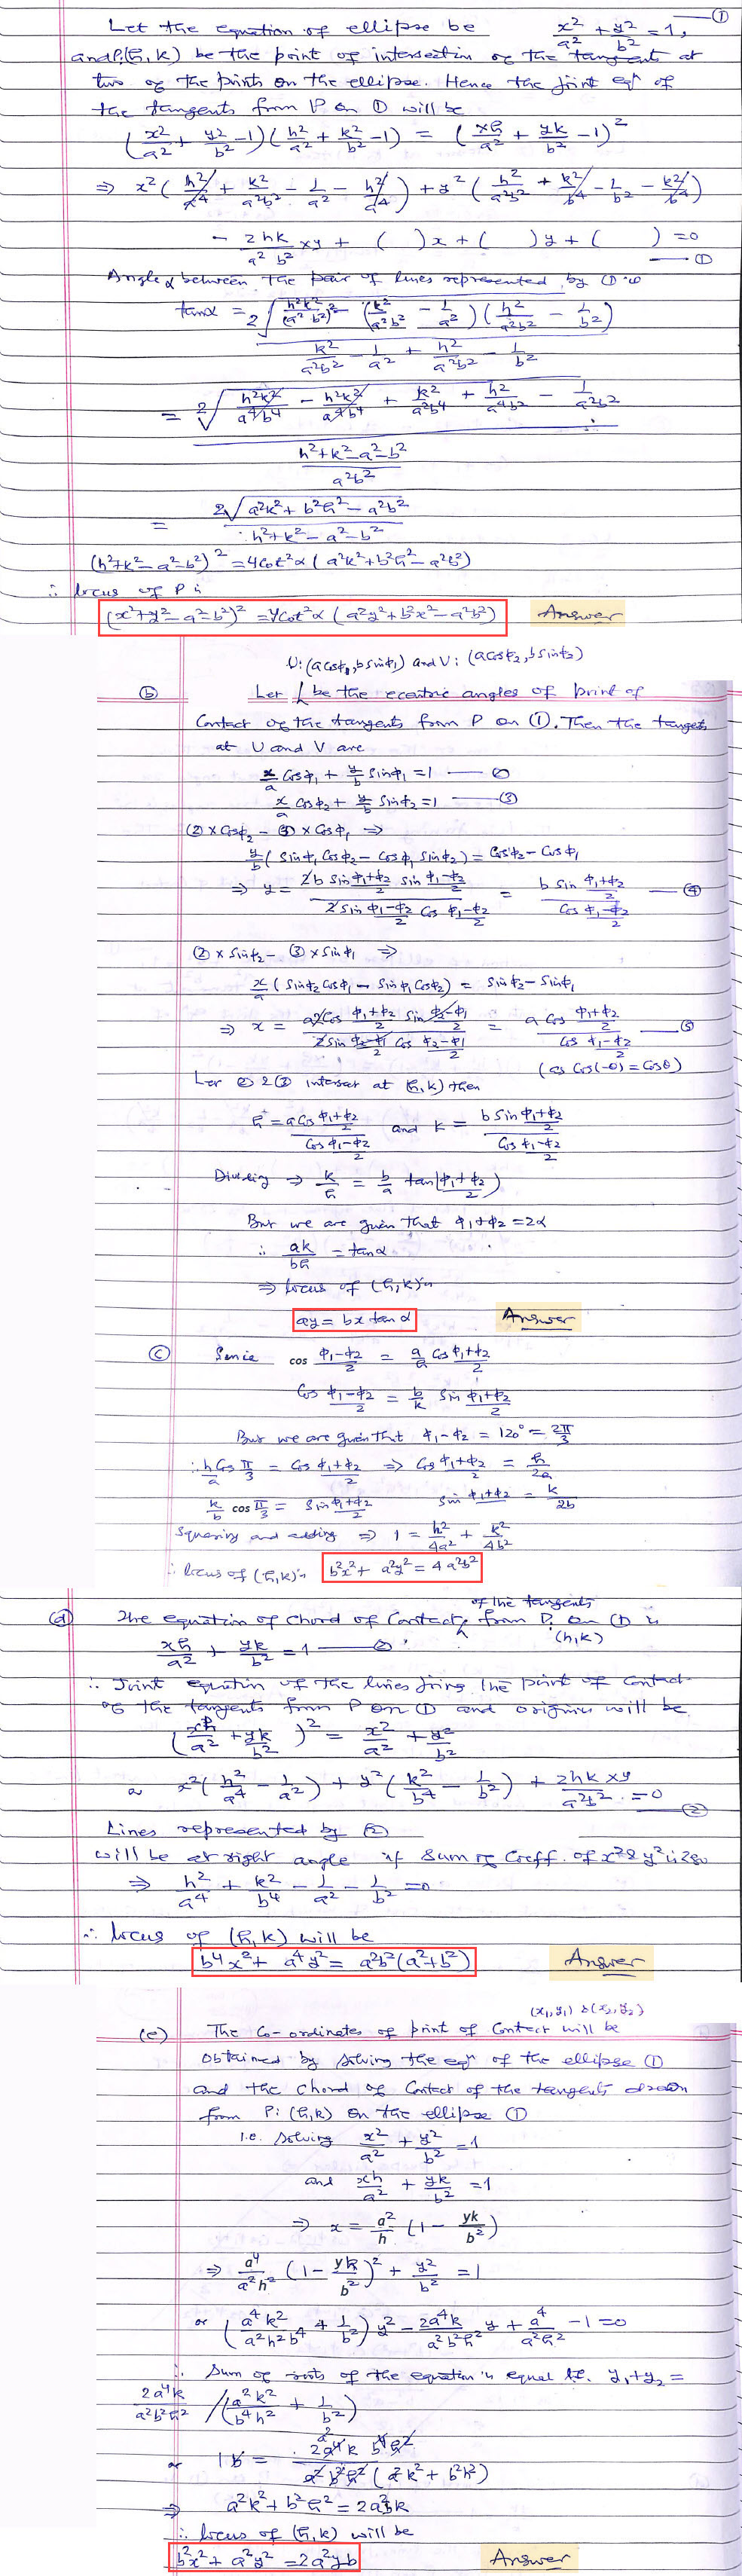 Let the equation of ellipse be x²/a² + y²/b² = 1, —①
and P:(h, k) be the point of intersection of the tangents at
two of the points on the ellipse. Hence the joint eqⁿ of
the tangents from P on ① will be
(x²/a² + y²/b² - 1)(h²/a² + k²/b² - 1) = (xh/a² + yk/b² - 1)²
⇒ x²(h²/a⁴ + k²/a²b² - 1/a² - h²/a⁴) + y²(h²/a²b² + k²/b⁴ - 1/b² - k²/b⁴)
- 2hk/a²b² xy + ( )x + ( )y + ( ) = 0 —①
Angle α between the pair of lines represented by ① is
tanα = 2√(h²k²/(a²b²)² - (k²/a²b² - 1/a²)(h²/a²b² - 1/b²)) / (k²/a²b² - 1/a² + h²/a²b² - 1/b²)
= 2√(h²k²/a⁴b⁴ - h²k²/a⁴b⁴ + k²/a²b⁴ + h²/a⁴b² - 1/a²b²) / ((h²+k²-a²-b²)/a²b²)
= 2√(a²k² + b²h² - a²b²) / (h²+k²-a²-b²)
(h²+k²-a²-b²)² = 4cot²α (a²k²+b²h²-a²b²)
∴ locus of P is
(x²+y²-a²-b²)² = 4cot²α (a²y²+b²x²-a²b²) Answer
U:(acosϕ₁, bsinϕ₁) and V:(acosϕ₂, bsinϕ₂)
(b) Let be the eccentric angles of print of
Contact of the tangents from P on ①. Then the tangets
at U and V are
x/a cosϕ₁ + y/b sinϕ₁ = 1 —②
x/a cosϕ₂ + y/b sinϕ₂ = 1 —③
② × cosϕ₂ - ③ × cosϕ₁ ⇒
y/b (sinϕ₁ cosϕ₂ - cosϕ₁ sinϕ₂) = cosϕ₂ - cosϕ₁
⇒ y = 2b sin (ϕ₁+ϕ₂)/2 sin (ϕ₁-ϕ₂)/2 / 2 sin (ϕ₁-ϕ₂)/2 cos (ϕ₁-ϕ₂)/2 = b sin (ϕ₁+ϕ₂)/2 / cos (ϕ₁-ϕ₂)/2 —④
② × sinϕ₂ - ③ × sinϕ₁ ⇒
x/a (sinϕ₂ cosϕ₁ - sinϕ₁ cosϕ₂) = sinϕ₂ - sinϕ₁
⇒ x = a2cos (ϕ₁+ϕ₂)/2 sin (ϕ₂-ϕ₁)/2 / 2 sin (ϕ₂-ϕ₁)/2 cos (ϕ₂-ϕ₁)/2 = a cos (ϕ₁+ϕ₂)/2 / cos (ϕ₁-ϕ₂)/2 —⑤
(as cos(-θ) = cosθ)
Let ② & ③ interset at (h, k) then
h = a cos (ϕ₁+ϕ₂)/2 / cos (ϕ₁-ϕ₂)/2 and k = b sin (ϕ₁+ϕ₂)/2 / cos (ϕ₁-ϕ₂)/2
Dividing ⇒ k/h = b/a tan((ϕ₁+ϕ₂)/2)
But we are given that ϕ₁+ϕ₂ = 2α
∴ ak/bh = tanα
⇒ locus of (h, k) is
ay = bx tanα Answer
(c) Since cos (ϕ₁-ϕ₂)/2 = a/h cos (ϕ₁+ϕ₂)/2
cos (ϕ₁-ϕ₂)/2 = b/k sin (ϕ₁+ϕ₂)/2
But we are given that ϕ₁-ϕ₂ = 120° = 2π/3
∴ h/a cos π/3 = cos (ϕ₁+ϕ₂)/2 ⇒ cos (ϕ₁+ϕ₂)/2 = h/2a
k/b cos π/3 = sin (ϕ₁+ϕ₂)/2 sin (ϕ₁+ϕ₂)/2 = k/2b
Squaring and adding ⇒ 1 = h²/4a² + k²/4b²
∴ locus of (h, k) is b²x² + a²y² = 4a²b²
of the tangents
(d) The equation of chord of Contact from P on ① is
(h, k)
xh/a² + yk/b² = 1 —②
∴ Joint equation of the lines joining the point of contact
of the tangents from P on ① and origin will be
(xh/a² + yk/b²)² = x²/a² + y²/b²
or x²(h²/a⁴ - 1/a²) + y²(k²/b⁴ - 1/b²) + 2hk xy/a²b² = 0 —②
Lines represented by ②
will be at right angle if sum of coeff. of x² & y² is zero
⇒ h²/a⁴ + k²/b⁴ - 1/a² - 1/b² = 0
∴ locus of (h, k) will be
b⁴x² + a⁴y² = a²b²(a²+b²) Answer
(x₁, y₁) & (x₂, y₂)
(e) The Co-ordinates of print of Contact will be
obtained by solving the eqⁿ of the ellipse ①
and the chord of Contact of the tangents drawn
from P:(h, k) on the ellipse ①
i.e. solving x²/a² + y²/b² = 1
and xh/a² + yk/b² = 1
⇒ x = a²/h (1 - yk/b²)
⇒ a⁴/a²h² (1 - yk/b²)² + y²/b² = 1
or (a⁴k²/a²h²b⁴ + 1/b²) y² - 2a⁴k/a²b²h² y + a⁴/a²h² - 1 = 0
∴ Sum of roots of the equation is equal to i.e. y₁+y₂ =
2a⁴k/a²b²h² / (a²k²/b⁴h² + 1/b²)
or b = 2a⁴k b⁴h² / a²b²h²(a²k² + b²h²)
⇒ a²k² + b²h² = 2a²bk
∴ locus of (h, k) will be
b²x² + a²y² = 2a²yb Answer